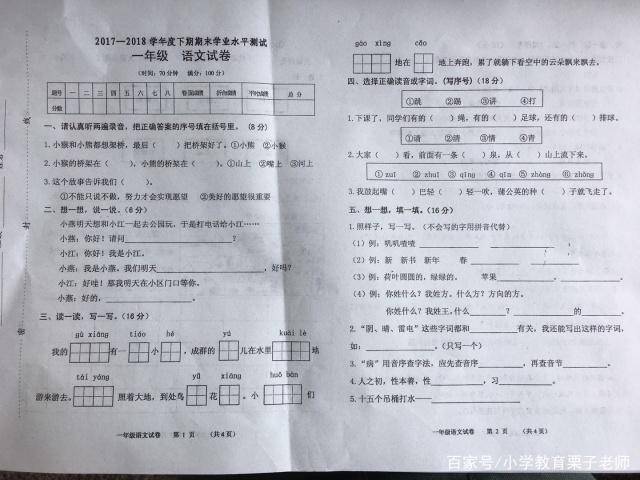 2017—2018 学年度下期期末学业水平测试
一年级 语文试卷
(时间:70分钟 满分:100分)
题号 一 二 三 四 五 六 七 八 卷面成绩 折合成绩 平时成绩 总分
分数
一、请认真听两遍录音,把正确答案的序号填在括号里。(8分)
1.小猴和小熊都想架桥,最后( )把桥架好了。①小熊 ②小猴
2.小猴的桥架在( ),小熊的桥架在( )。①山上 ②嘴上 ③河上
3.这个故事告诉我们( )。
①不能只说不做,努力才会实现愿望 ②美好的愿望很重要
二、想一想,说一说。(6分)
小燕明天想和小江一起去公园玩,于是打电话给小江……
小燕:你好!请问________?
小江:你好!我是小江。
小燕:我是小燕,我们明天________,好吗?
小江:好哇!那我明天在小区门口等你。
小燕:好的,________。
三、读一读,写一写。(16分)
gù xiāng tiáo hé yú kuài lè
我的 有一 小 ,成群的 儿在水里 地
tài yáng yǔ xiǎng huǒ bàn
游来游去。 照着大地,到处鸟 花 。小 们
一年级语文试卷 第 1 页 (共4页)
gāo xìng cǎo
地在 地上奔跑,累了就躺下看空中的云朵飘来飘去。
四、选择正确读音或字词。(写序号)(18分)
①跳 ②踢 ③讲 ④打
1.下课了,同学们有的( )绳,有的( )足球,还有的( )排球。
①请 ②清 ③情 ④青
2.大家( )看,前面有一条( )泉,从( )山上流下来。
① zuǐ ② zhuī ③ qīng ④ qīn ⑤ zhòng ⑥ zhǒng
3.我鼓起嘴( )巴轻( )轻一吹,蒲公英的种( )子就飞走了。
五、想一想,填一填。(16分)
1.照样子,写一写。(不会写的字用拼音代替)
(1)例:叽叽喳喳 ________ ________
(2)例:新 新书 新年 春 ________ ________
(3)例:荷叶圆圆的,绿绿的。 苹果________,________。
(4)例:你姓什么?我姓方。什么方?方向的方。
你姓什么?我姓王,什么____? ________的____。
2.“阴、晴、雷电”这些词都和________有关,我还能写出这样的字词,
如:________。(只写一个)
3.“病”用音序查字法,应先查音序________,再查音节________。
4.人之初,性本善,性________,习________。
5.十五个吊桶打水——________
一年级语文试卷 第 2 页 (共4页)
线
封
密
百家号/小学教育栗子老师